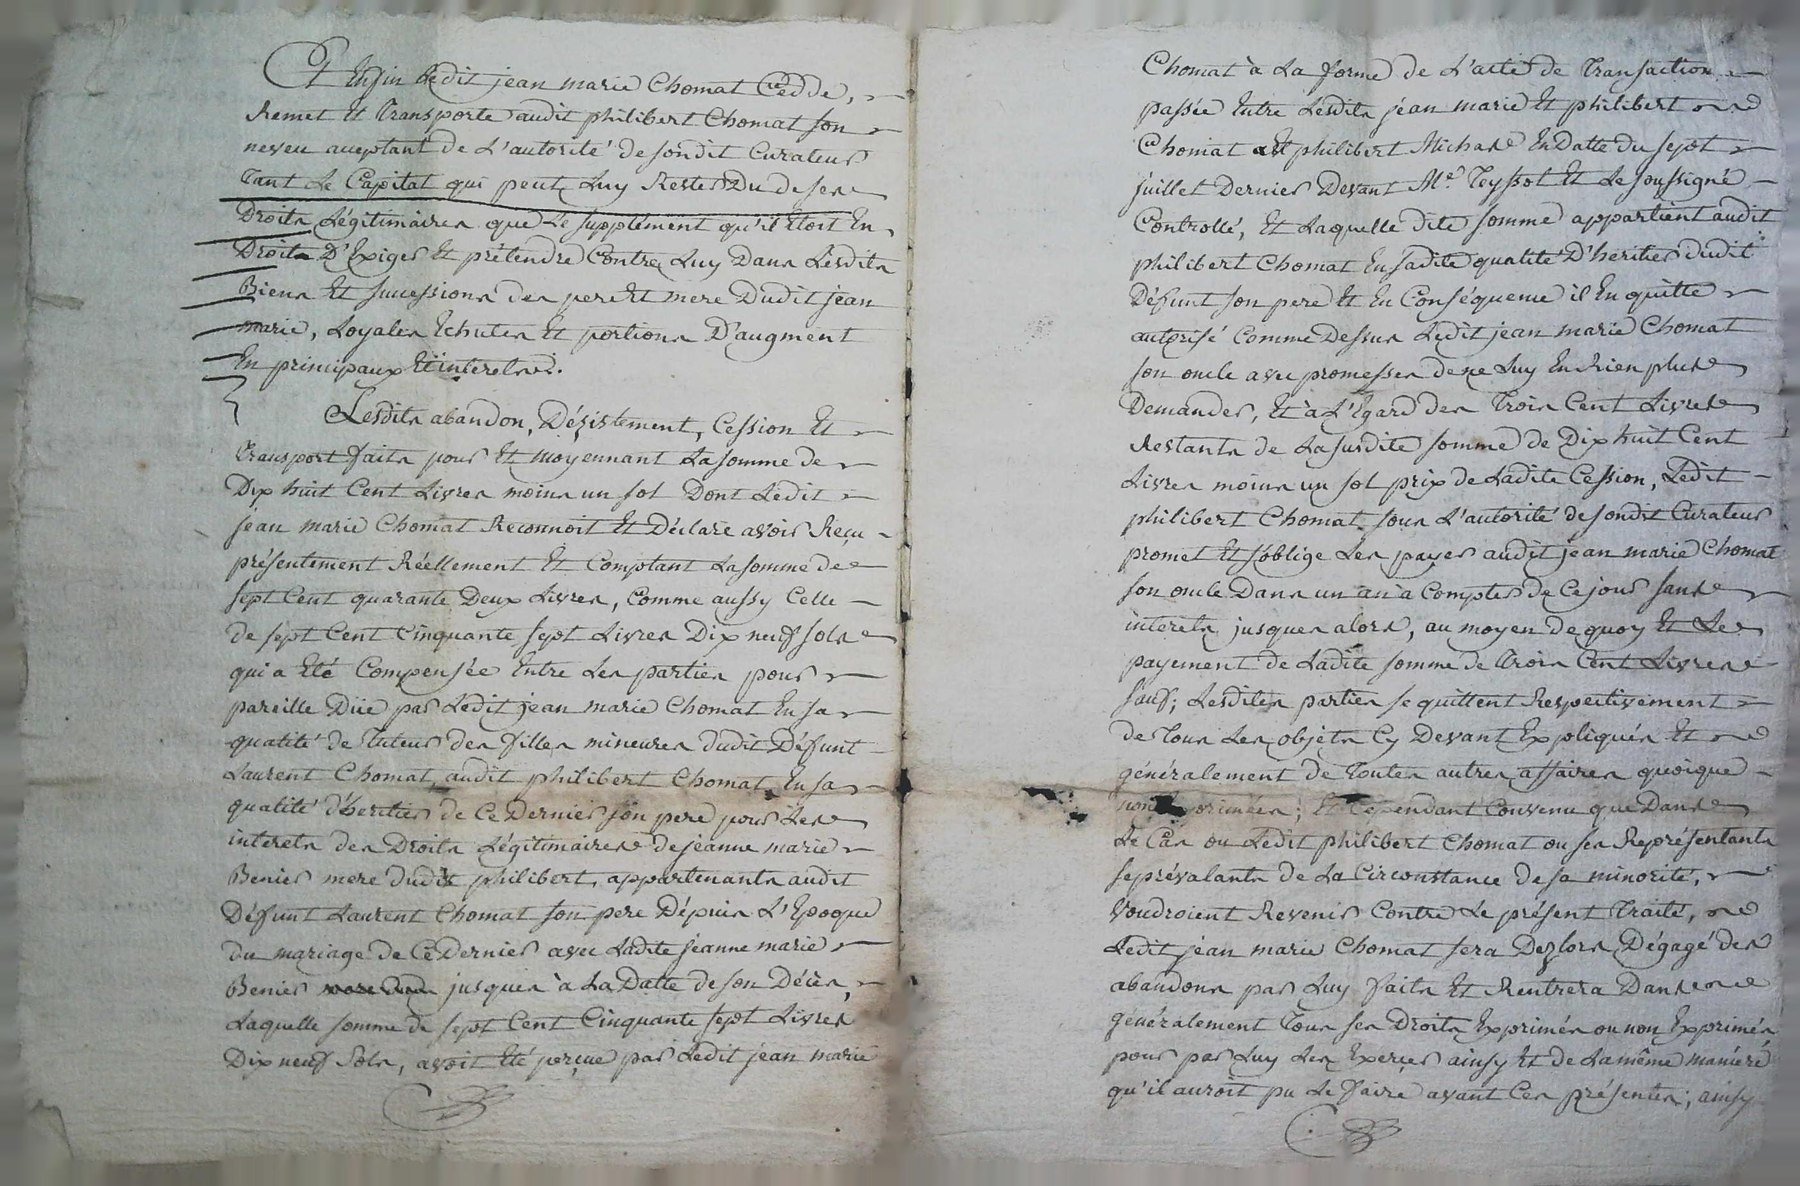 Et Enfin Ledit jean marie Chomat Cedde,
Remet Et Transporte audit philibert Chomat son
neveu acceptant de L'autorité de sondit Curateur
Tant Le Capital qui peut Luy Rester Du de ses
Droits Légitimaires que Le supplement qu'il Etoit En
Droits D'Exiger Et prétendre Contre Luy Dans Lesdits
Biens Et successions des pere Et mere Dudit jean
marie, Loyales Echutes Et portions D'augment
En principaux Et interets.
Lesdits abandon, Dézistement, Cession Et
Transport faits pour Et moyennant La somme de
Dix huit Cent Livres moins un sol Dont Ledit
jean marie Chomat Reconnoit Et Déclare avoir Reçu
présentement Réellement Et Comptant La somme de
sept Cent quarante Deux Livres, Comme aussy Celle
de sept Cent Cinquante sept Livres Dix neuf sols
qui a Eté Compensée Entre Les parties pour
pareille Düe par Ledit jean marie Chomat En sa
qualité de Tuteur des filles mineures dudit Défunt
Laurent Chomat audit philibert Chomat En sa
qualité d'heritier de Ce Dernier son pere pour Les
interets des Droits Légitimaires de jeanne marie
Benier mere dudit philibert, appartenants audit
Défunt Laurent Chomat son pere Dépuis L'Epoque
du mariage de Ce Dernier avec Ladite jeanne marie
Benier jusques à La Datte de son Décès,
Laquelle somme de sept Cent Cinquante sept Livres
Dix neuf Sols, avoit Eté perçue par Ledit jean marie
Chomat à La forme de L'acte de Transaction
passée Entre Lesdits jean marie Et philibert
Chomat Et philibert Michas En Datte du sept
juillet Dernier Devant Me. Teyssot Et Le soussigné
Controllé, Et Laquelle dite somme appartient audit
philibert Chomat En sadite qualité D'heritier dudit
Défunt son pere Et En Conséquence il En quitte
autorisé Comme Dessus Ledit jean marie Chomat
son oncle avec promesses de ne Luy En Rien plus
Demander, Et à L'Egard des Trois Cent Livres
Restants de La susdite somme de Dix huit Cent
Livres moins un sol prix de Ladite Cession, Ledit
philibert Chomat sous L'autorité de sondit Curateur
promet Et s'oblige Les payer audit jean marie Chomat
son oncle Dans un an a Compter de Ce jour sans
interets jusques alors, au moyen de quoy Et Le
payement de Ladite somme de Trois Cent Livres
sauf, Lesdites parties se quittent Respectivement
de Tous Les objets Cy Devant Expliqués Et
généralement de Toutes autres affaires quoique
non Exprimées; Et Cependant Convenu que Dans
Le Cas ou Ledit philibert Chomat ou ses Représentants
se prévalants de La Circonstance de sa minorité,
Voudroient Revenir Contre Le présent Traité,
Ledit jean marie Chomat sera Dezlors Dégagé des
abandons par Luy faits Et Rentrera Dans
généralement Tous ses Droits Exprimés ou non Exprimés
pour par Luy Les Exercer ainsy Et de La même maniere
qu'il auroit pu Le faire avant Ces présentes; ainsy